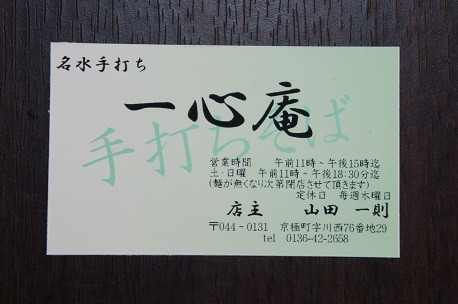 名水手打ち
一心庵
手打ちそば
営業時間 午前11時～午後15時迄
土・日曜 午前11時～午後18:30分迄
(麺が無くなり次第閉店させて頂きます)
定休日 毎週木曜日
店主 山田 一則
〒044－0131 京極町字川西76番地29
tel 0136-42-2658